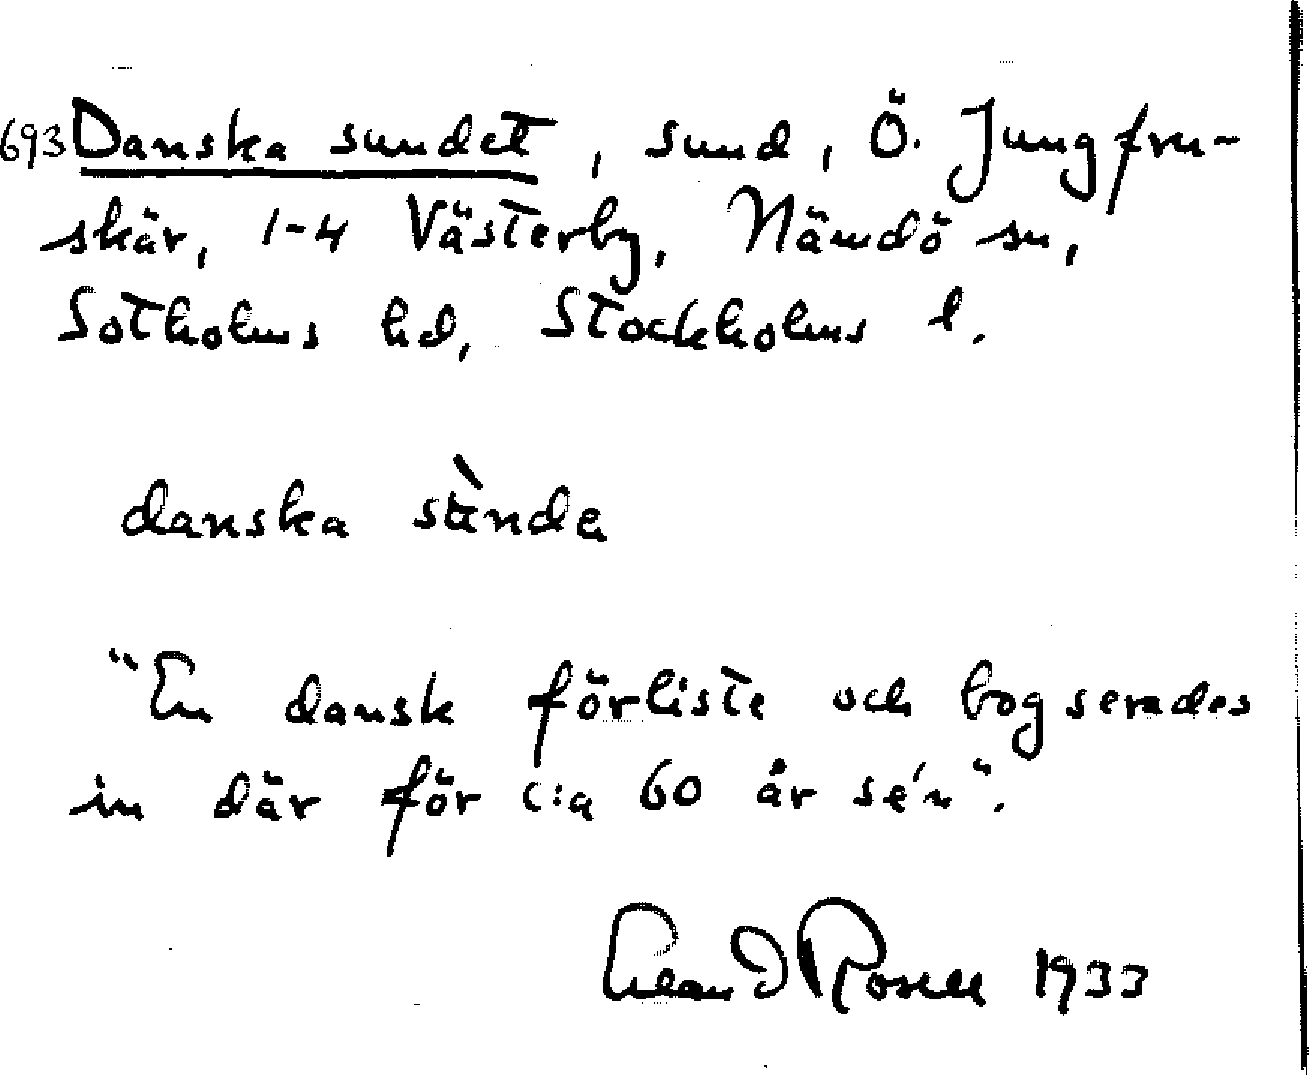 693 Danska sundet, sund, Ö. Jungfru-
skär, 1-4 Västerby, Nämdö sn,
Sotholms hd, Stockholms l.
danska
"En dansk förliste och bogserades
in där för c:a 60 år se'n".
1933